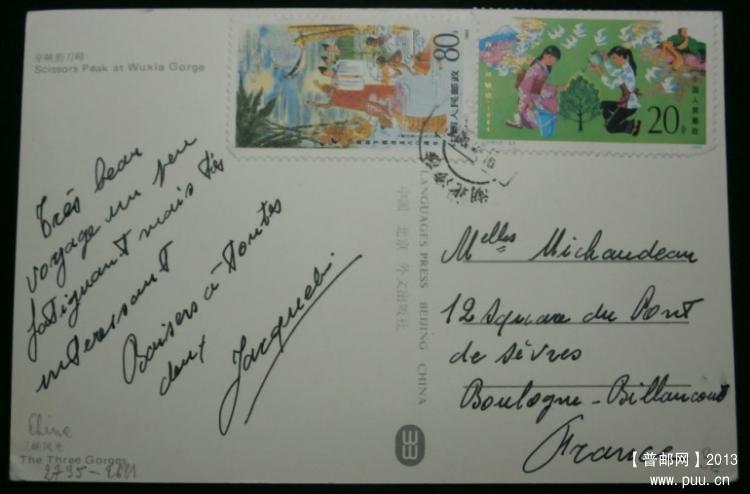 巫峡剪刀峰
Scissors Peak at Wuxia Gorge
Très beau
voyage un peu
fatiguant mais très
interessant
Baisers à toutes
deux
Jacqueline
China
三峡风光
The Three Gorges
80分
中国人民邮政
20分
中国人民邮政
湖北
LANGUAGES PRESS BEIJING CHINA
中国 北京 外文出版社
Melles Michaudeau
12 Square du Pont
de Sèvres
Boulogne-Billancourt
France
【普邮网】2013
www.puu.cn